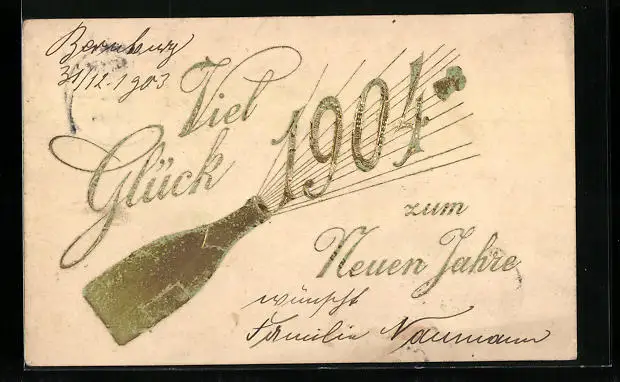 Bernburg
31/12.1903
Viel
Glück
1904
zum
Neuen Jahre
wünscht
Familie Naumann